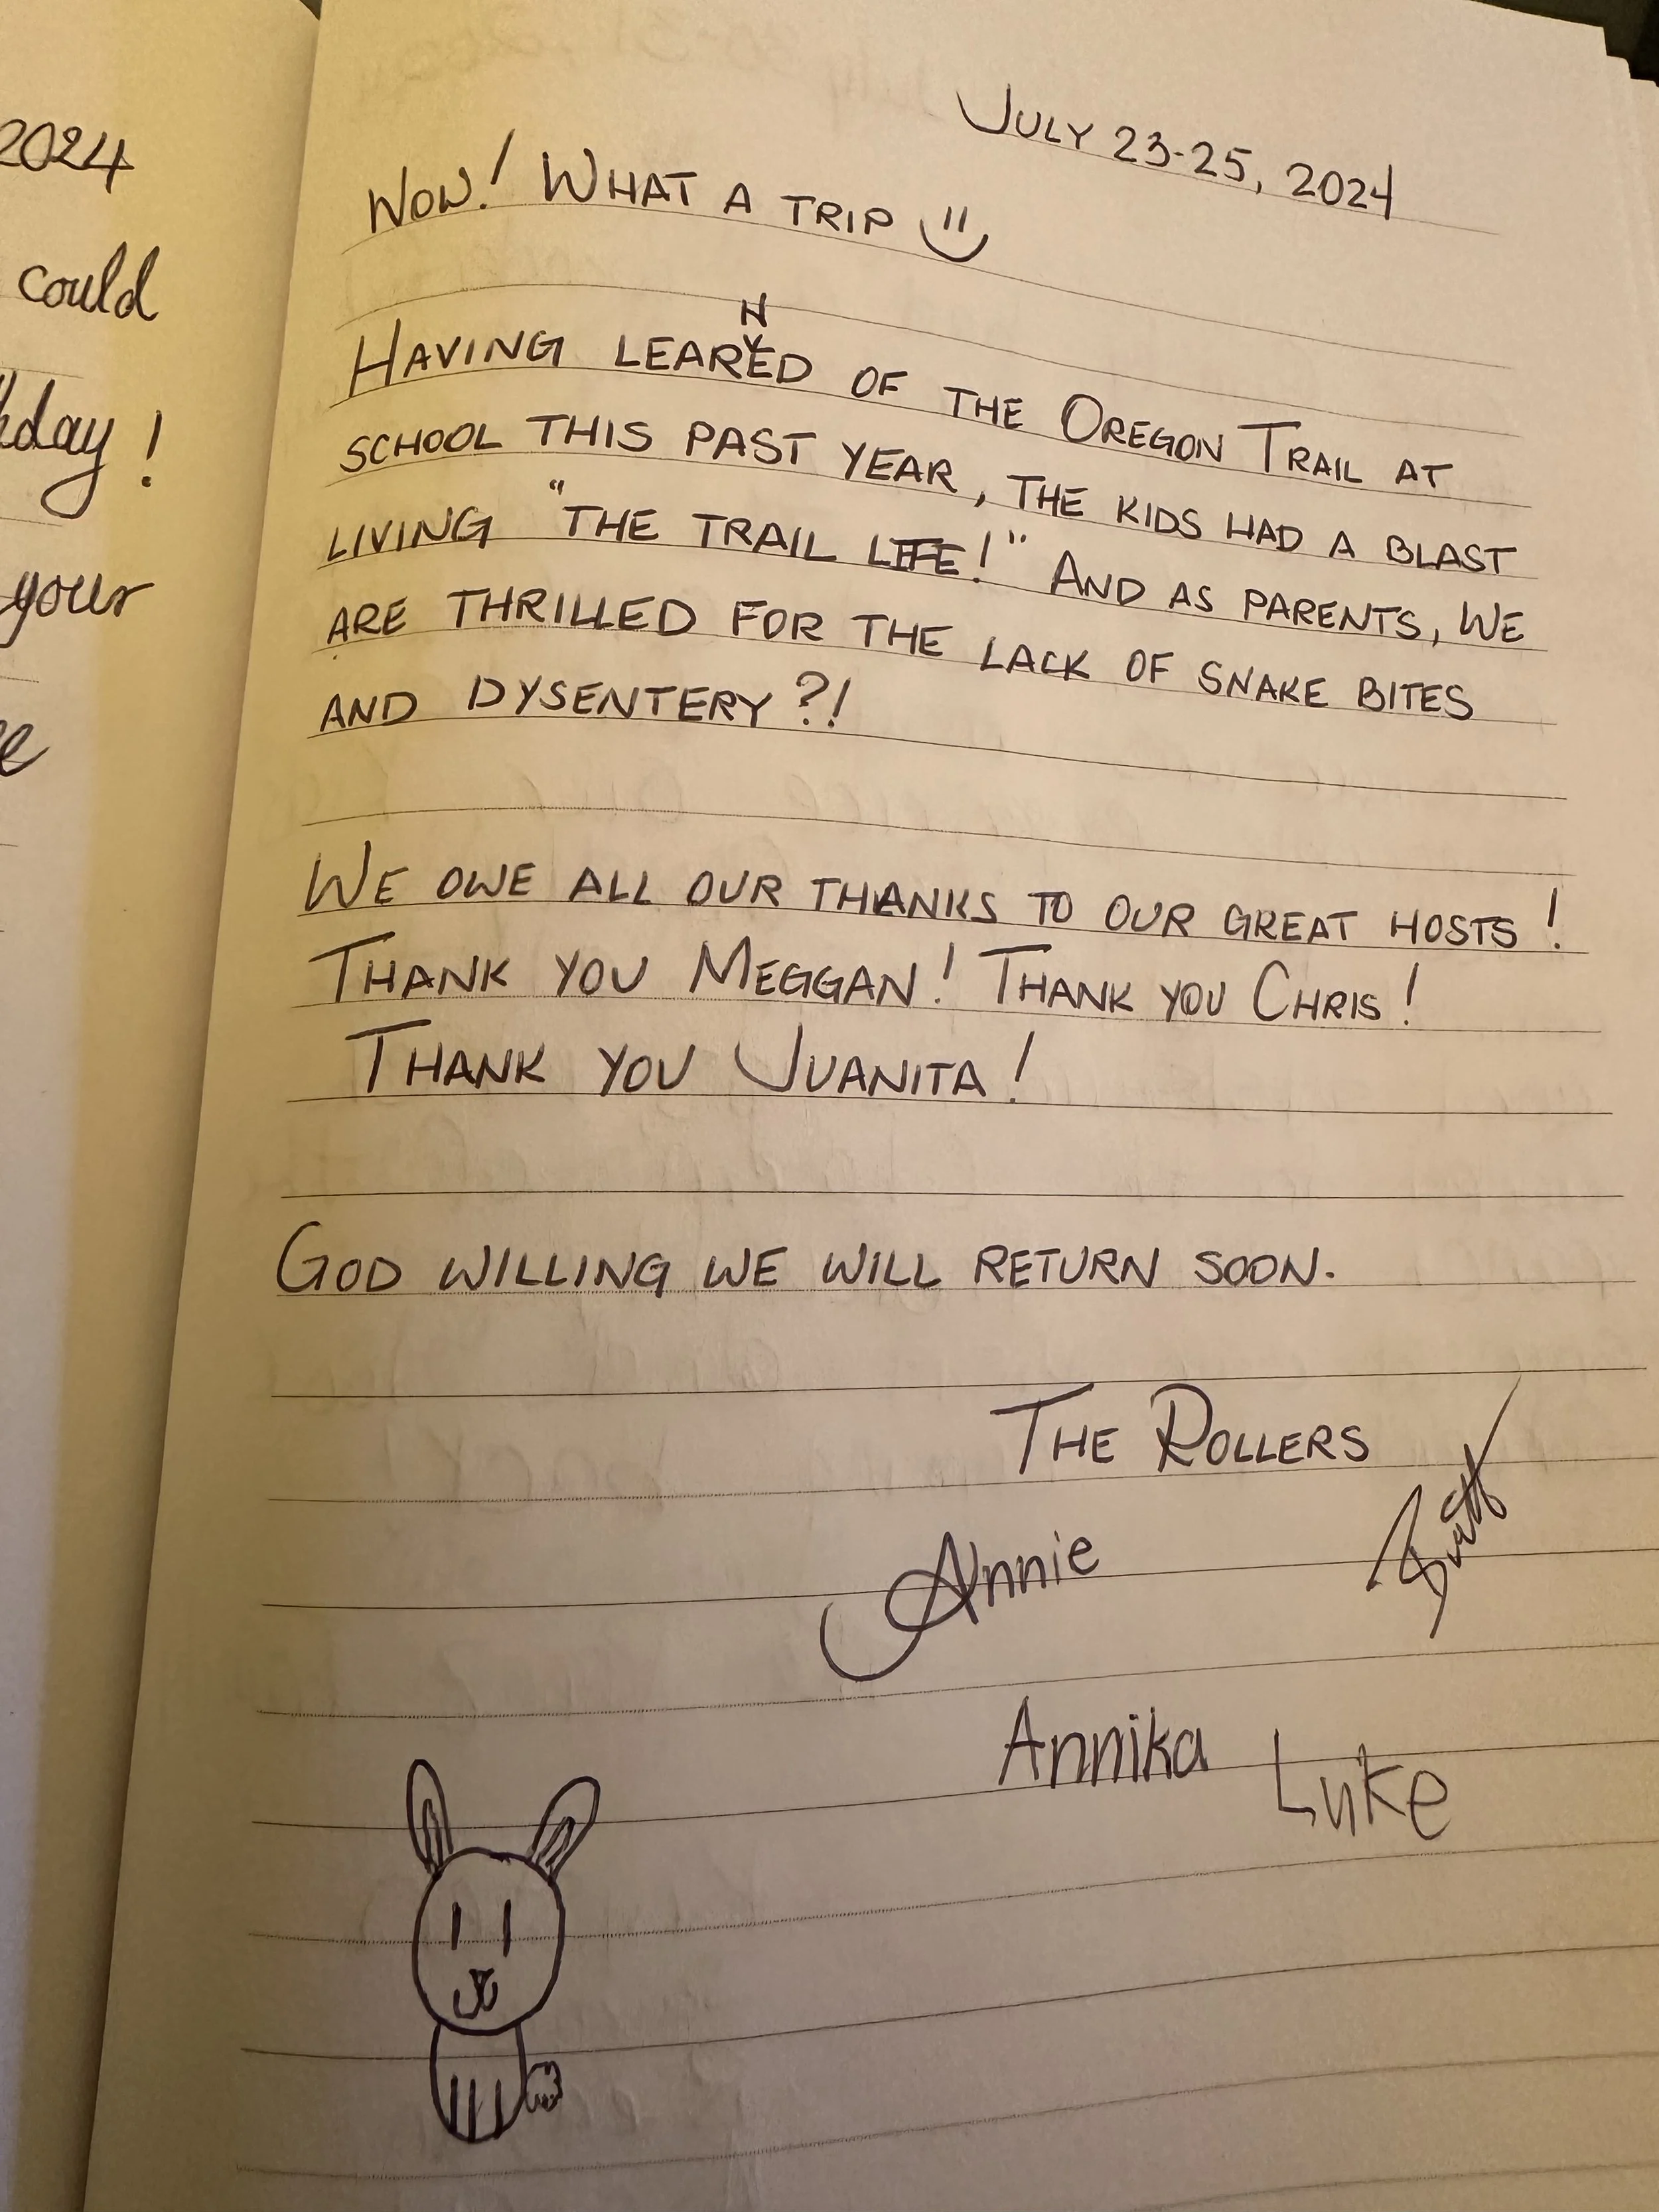 2024
could
day!
your
July 23-25, 2024
Wow! What a trip
Having learned of the Oregon Trail at
school this past year, the kids had a blast
living "the trail life!" And as parents, we
are thrilled for the lack of snake bites
and dysentery?!
We owe all our thanks to our great hosts!
Thank you Meggan! Thank you Chris!
Thank you Juanita!
God willing we will return soon.
The Rollers
Annie
Annika Luke